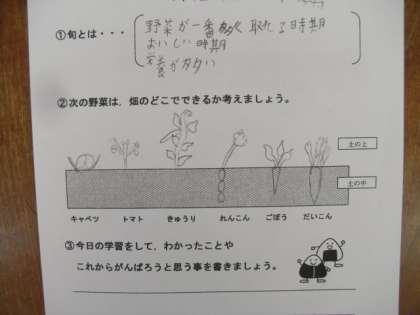 ①旬とは・・・
野菜が一番多く取れる時期
おいしい時期
栄養が高い
②次の野菜は、畑のどこでできるか考えましょう。
土の上
土の中
キャベツ トマト きゅうり れんこん ごぼう だいこん
③今日の学習をして、わかったことや
これからがんばろうと思う事を書きましょう。